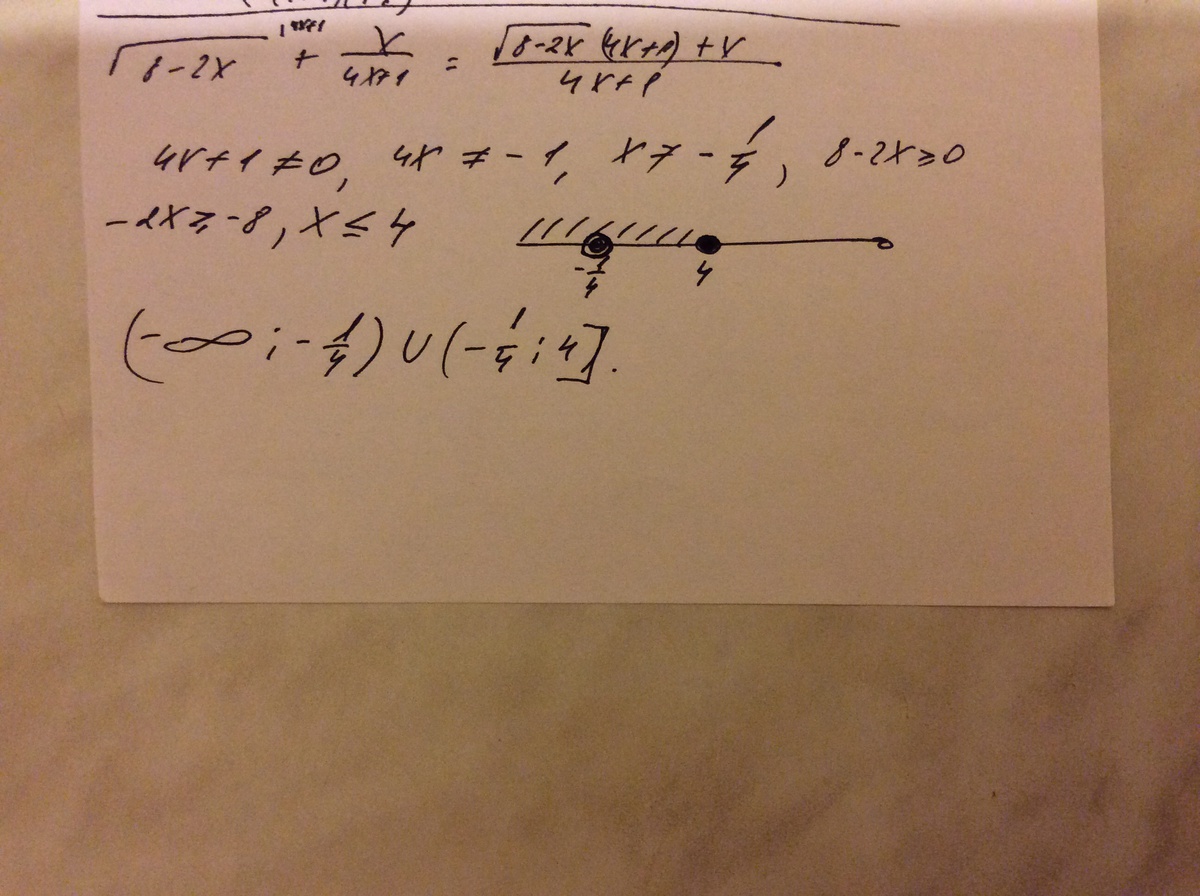 √(8-2X) |4X+1 + X/(4X+1) = (√(8-2X) (4X+1) + X)/(4X+1)
4X+1≠0, 4X ≠ -1, X ≠ -1/4, 8-2X≥0
-2X≥-8, X ≤ 4
-1/4 4
(-∞; -1/4) ∪ (-1/4; 4].